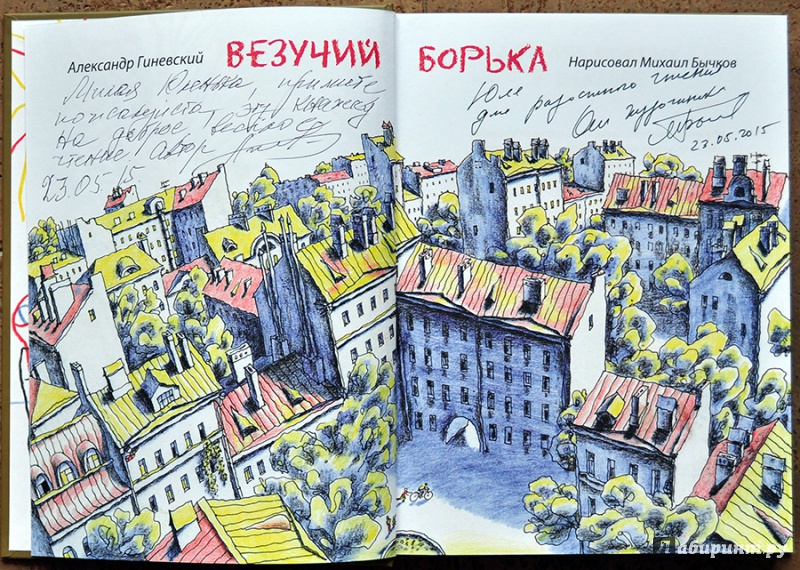 Александр Гиневский
ВЕЗУЧИЙ БОРЬКА
Нарисовал Михаил Бычков
Милая Юленька, примите
пожалуйста, эту книжку
на доброе, весёлое
чтение. Автор
23.05.15
Юле
для радостного чтения
От художника
23.05.2015
Лабиринт.ру